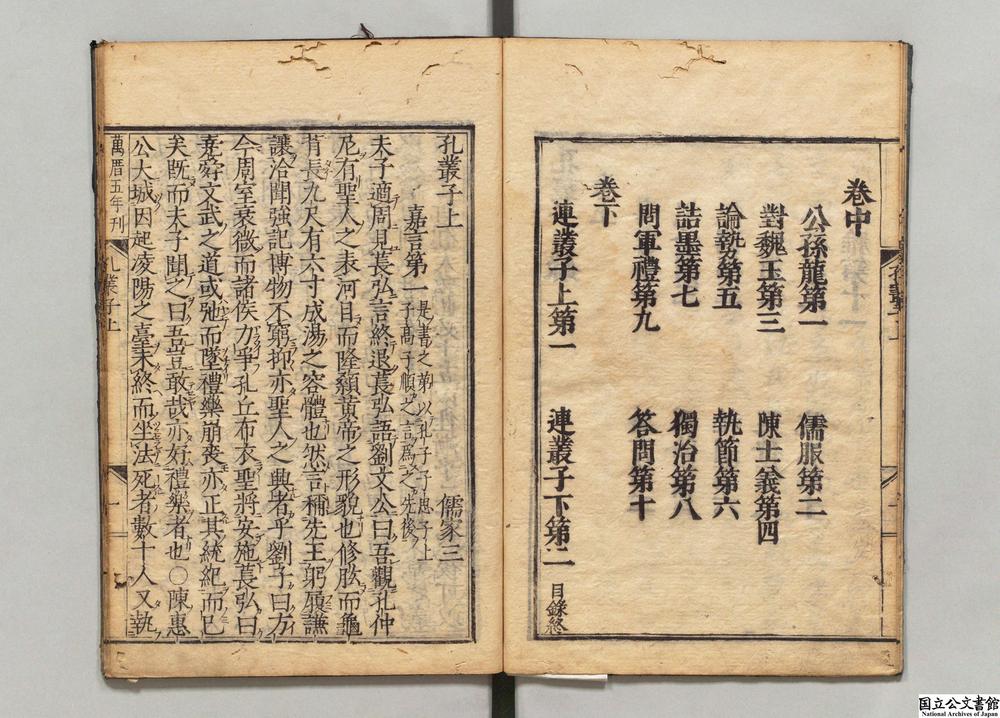 卷中
公孫龍第一 儒服第二
對魏王第三 陳士義第四
論勢第五 執節第六
詰墨第七 獨治第八
問軍禮第九 答問第十
卷下
連叢子上第一 連叢子下第二 目錄終
孔叢子上 儒家三
嘉言第一 是書之第以孔子子思子上子高子順之言爲之先後
夫子適周見萇弘言終退萇弘語劉文公曰吾觀孔仲
尼有聖人之表河目而隆顙黃帝之形貌也修肱而龜
背長九尺有六寸成湯之容體也然言稱先王躬履謙
讓洽聞強記博物不窮抑亦聖人之興者乎劉子曰方
今周室衰微而諸侯力爭孔丘布衣聖將安施萇弘曰
堯舜文武之道或弛而墜禮樂崩喪亦正其統紀而已
矣既而夫子聞之曰吾豈敢哉亦好禮樂者也〇陳惠
公大城因起凌陽之臺未終而坐法死者數十人又執
萬曆五年刊 孔叢子上 一
国立公文書館
National Archives of Japan